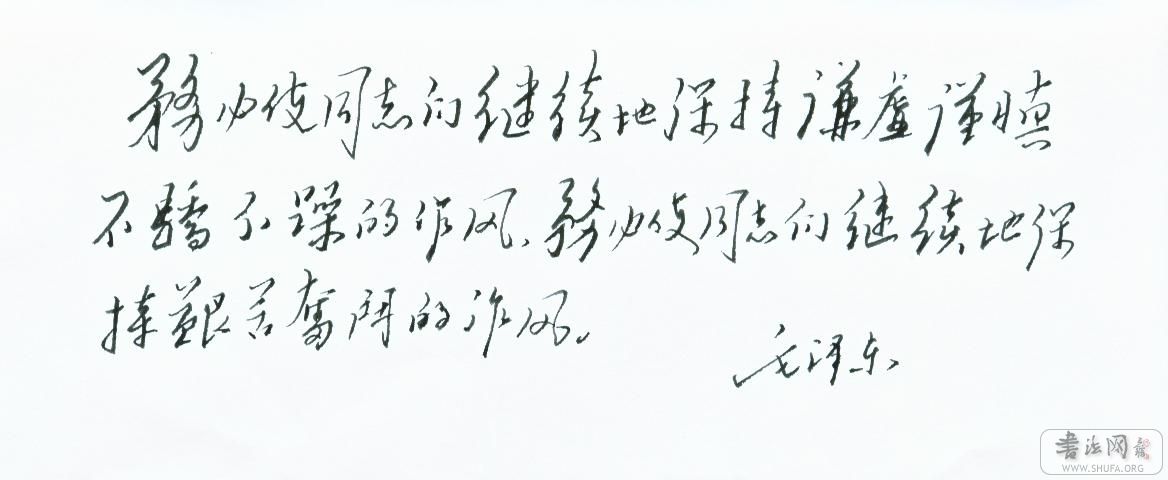 務必使同志们继续地保持谦虚谨慎
不驕不躁的作风、務必使同志们继续地保
持艱苦奮鬥的作风。
毛泽东
書法网
WWW.SHUFA.ORG